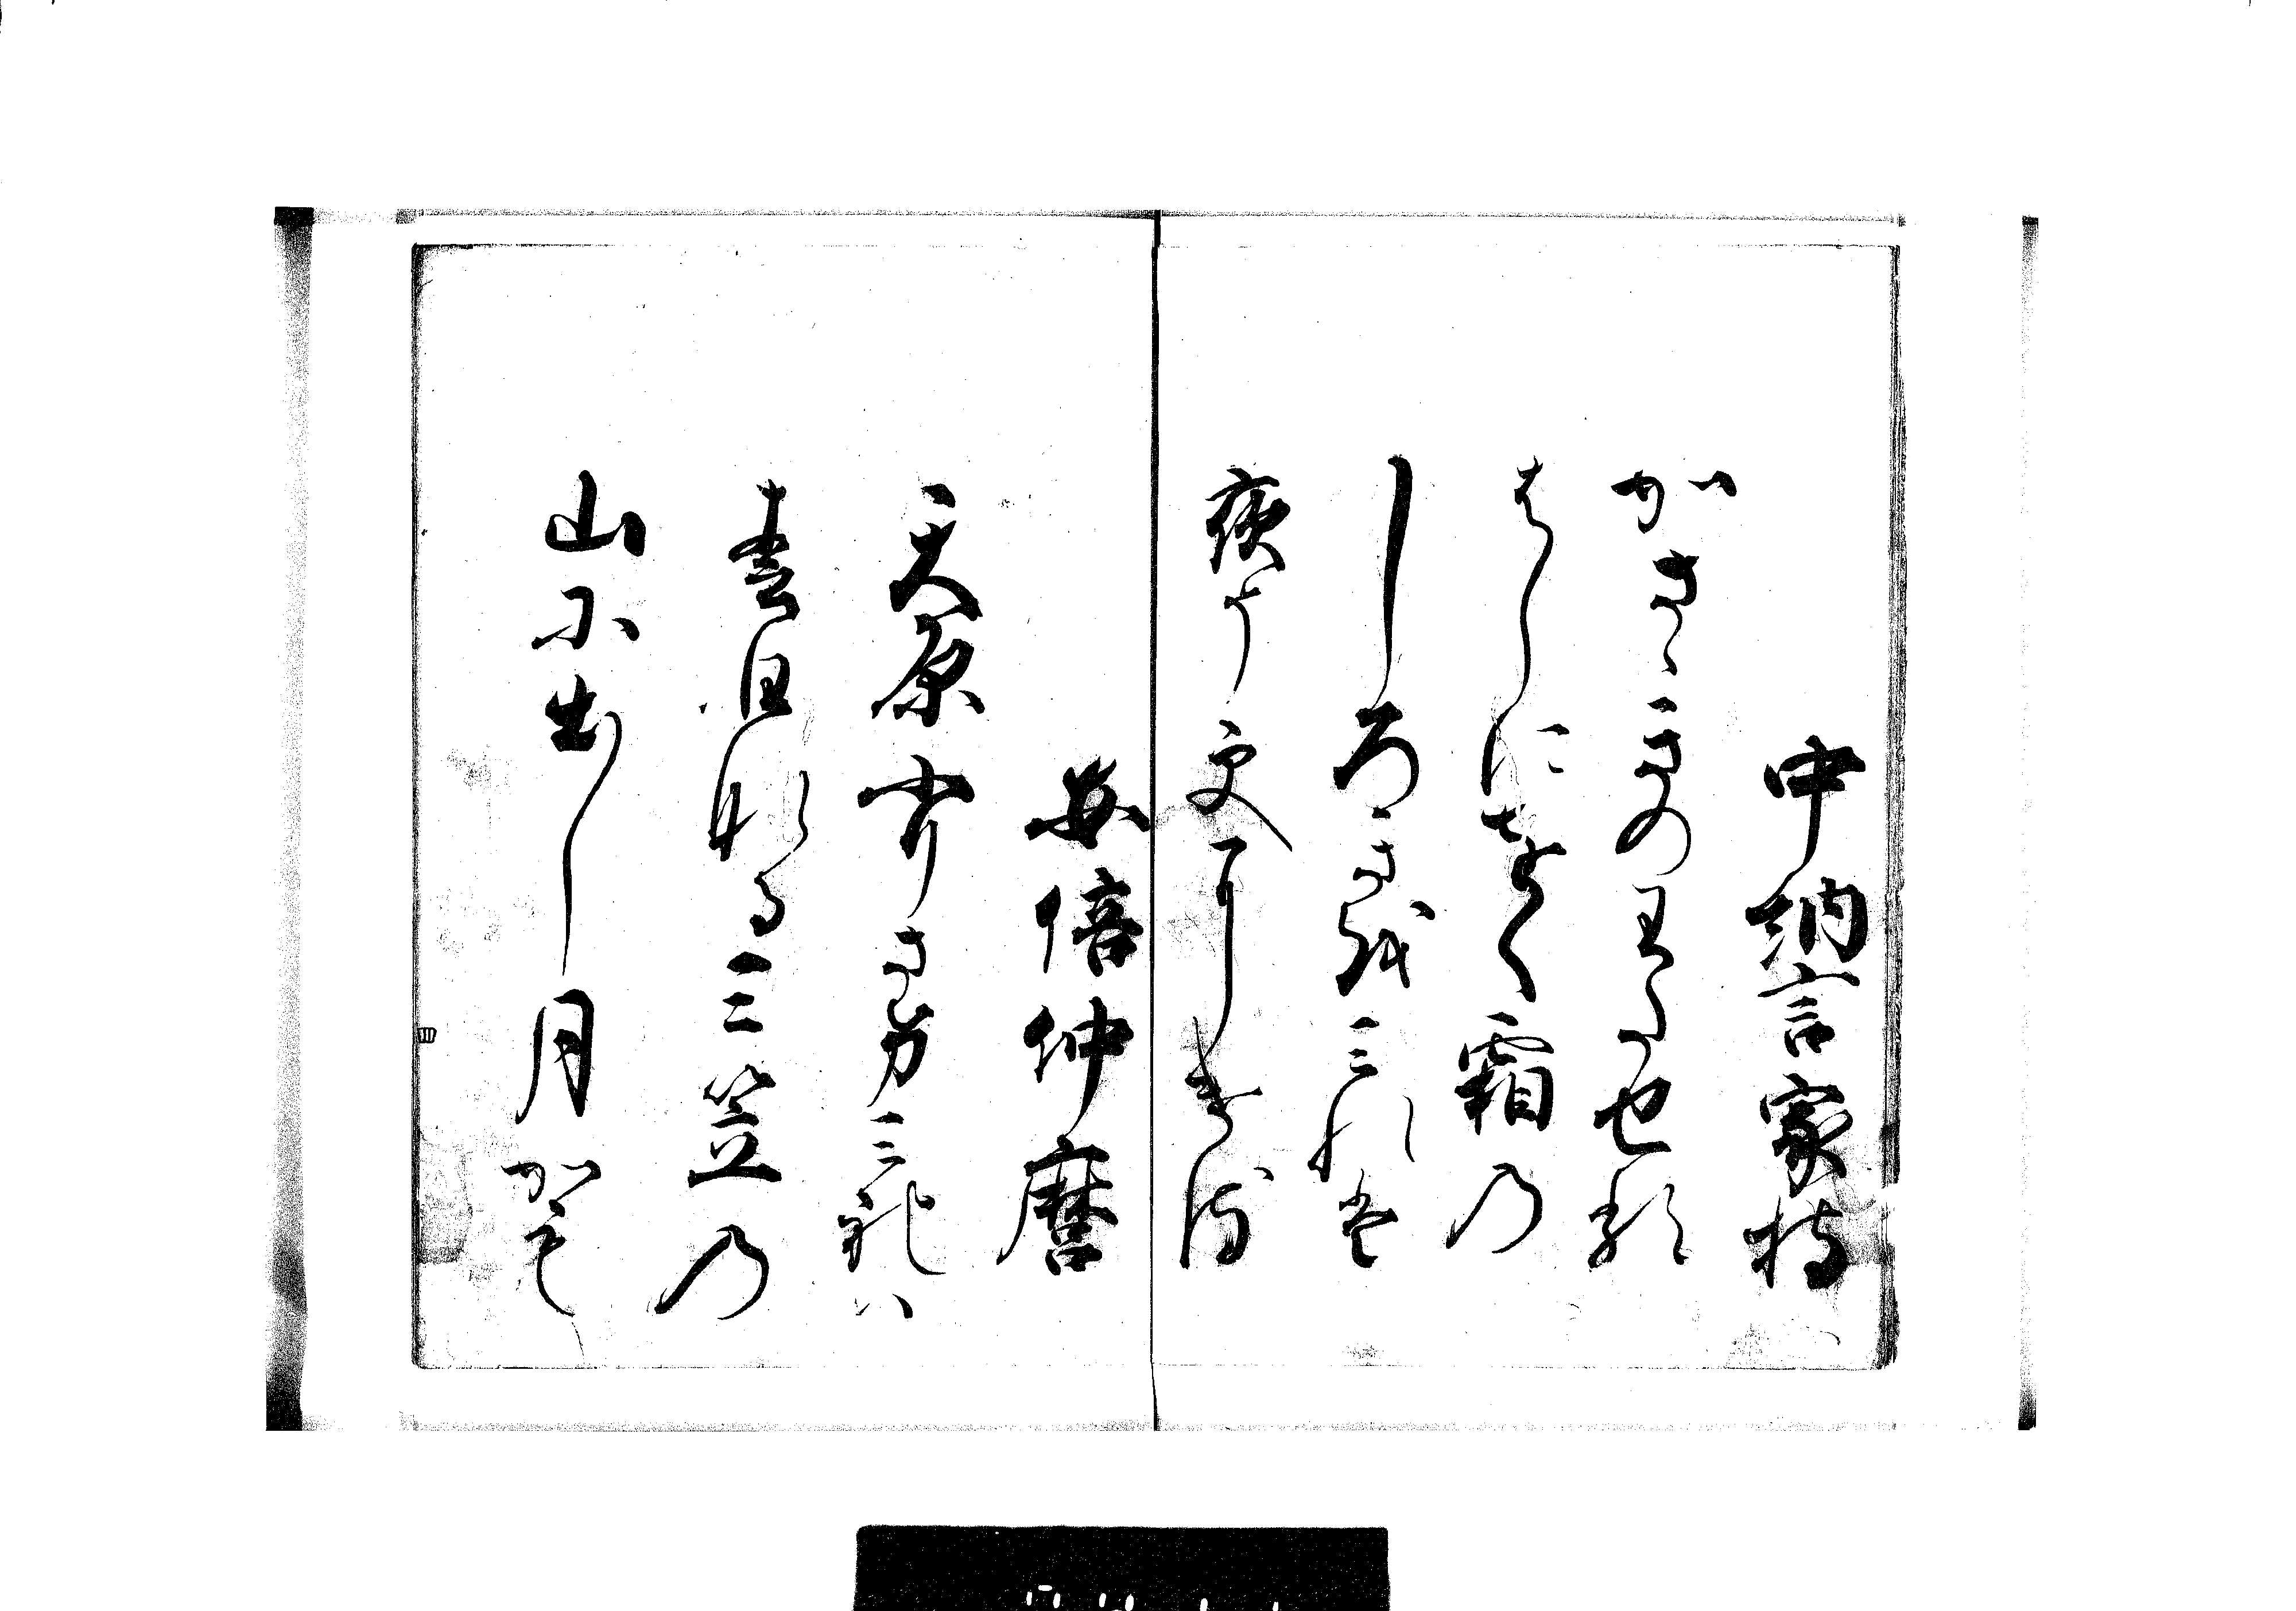 中納言家持
かさゝきのわたせる
はしにをく霜の
しろきをみれは
夜そ更にける
安倍仲麿
天原ふりさけみれは
春日なる三笠の
山に出し月かも
四